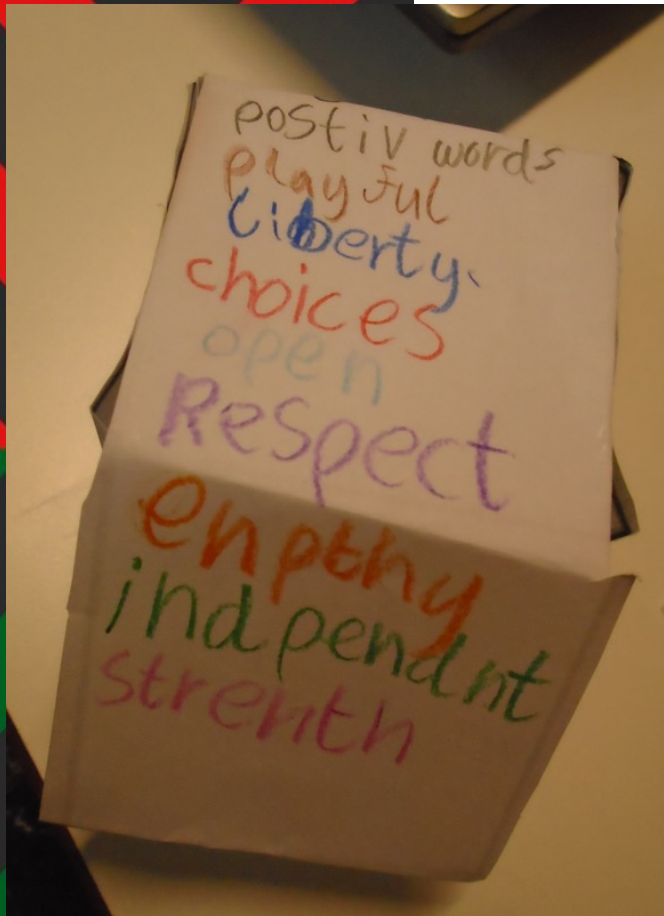 postiv words
playful
liberty.
choices
open
Respect
enpthy
indpendnt
strenth